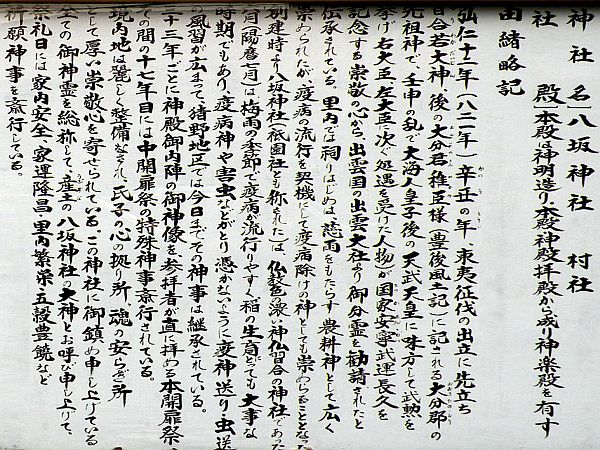 神社名〕八坂神社 村社
社殿〕本殿は神明造り、本殿神殿拝殿から成り神楽殿を有す
由緒略記
弘仁十二年(八二一年)辛丑の年、東夷征伐の出立に先立ち
日合若大神、後の大分君稚臣様(豊後風土記)に記される大分郡の
元祖神で、壬申の乱で大海人皇子後の天武天皇に味方して武勲を
挙げ右大臣、左大臣に次ぐ処遇を受けた人物)が国家安寧武運長久を
記念する崇敬の心から出雲国の出雲大社より御分霊を勧請されたと
伝承されている。里内では祠りはじめは、慈雨をもたらす農耕神として広く
崇められたが、疫病の流行を契機にして疫病除けの神としても崇められることとなった
別建時より八坂神社、祇園社とも称されたは、仏教色の濃い神仏習合の神社であった
(陽暦七月)は梅雨の季節で疫病が流行りやすく稲の生育にとっても大事な
時期でもあり、疫病神や害虫などがとり憑かないように疫神送り虫送
の風習が広まって猪野地区では今日までその神事は継承されている。
三十三年ごとに神殿御内陣の御神像を参拝者が直に拝める本開扉祭、
の間の十七年目には中開扉祭の特殊神事斎行されている。
境内地は麗しく整備なされ、氏子の心の拠り所 魂の安らぎ所
として厚い崇敬心を寄せられている。この神社に御鎮め申し上げている
全ての御神霊を総称して、産土の八坂神社の大神とお呼び申し上げて、
祭礼日には家内安全、家運隆昌、里内繁栄、五穀豊饒など
祈願神事を斎行している。